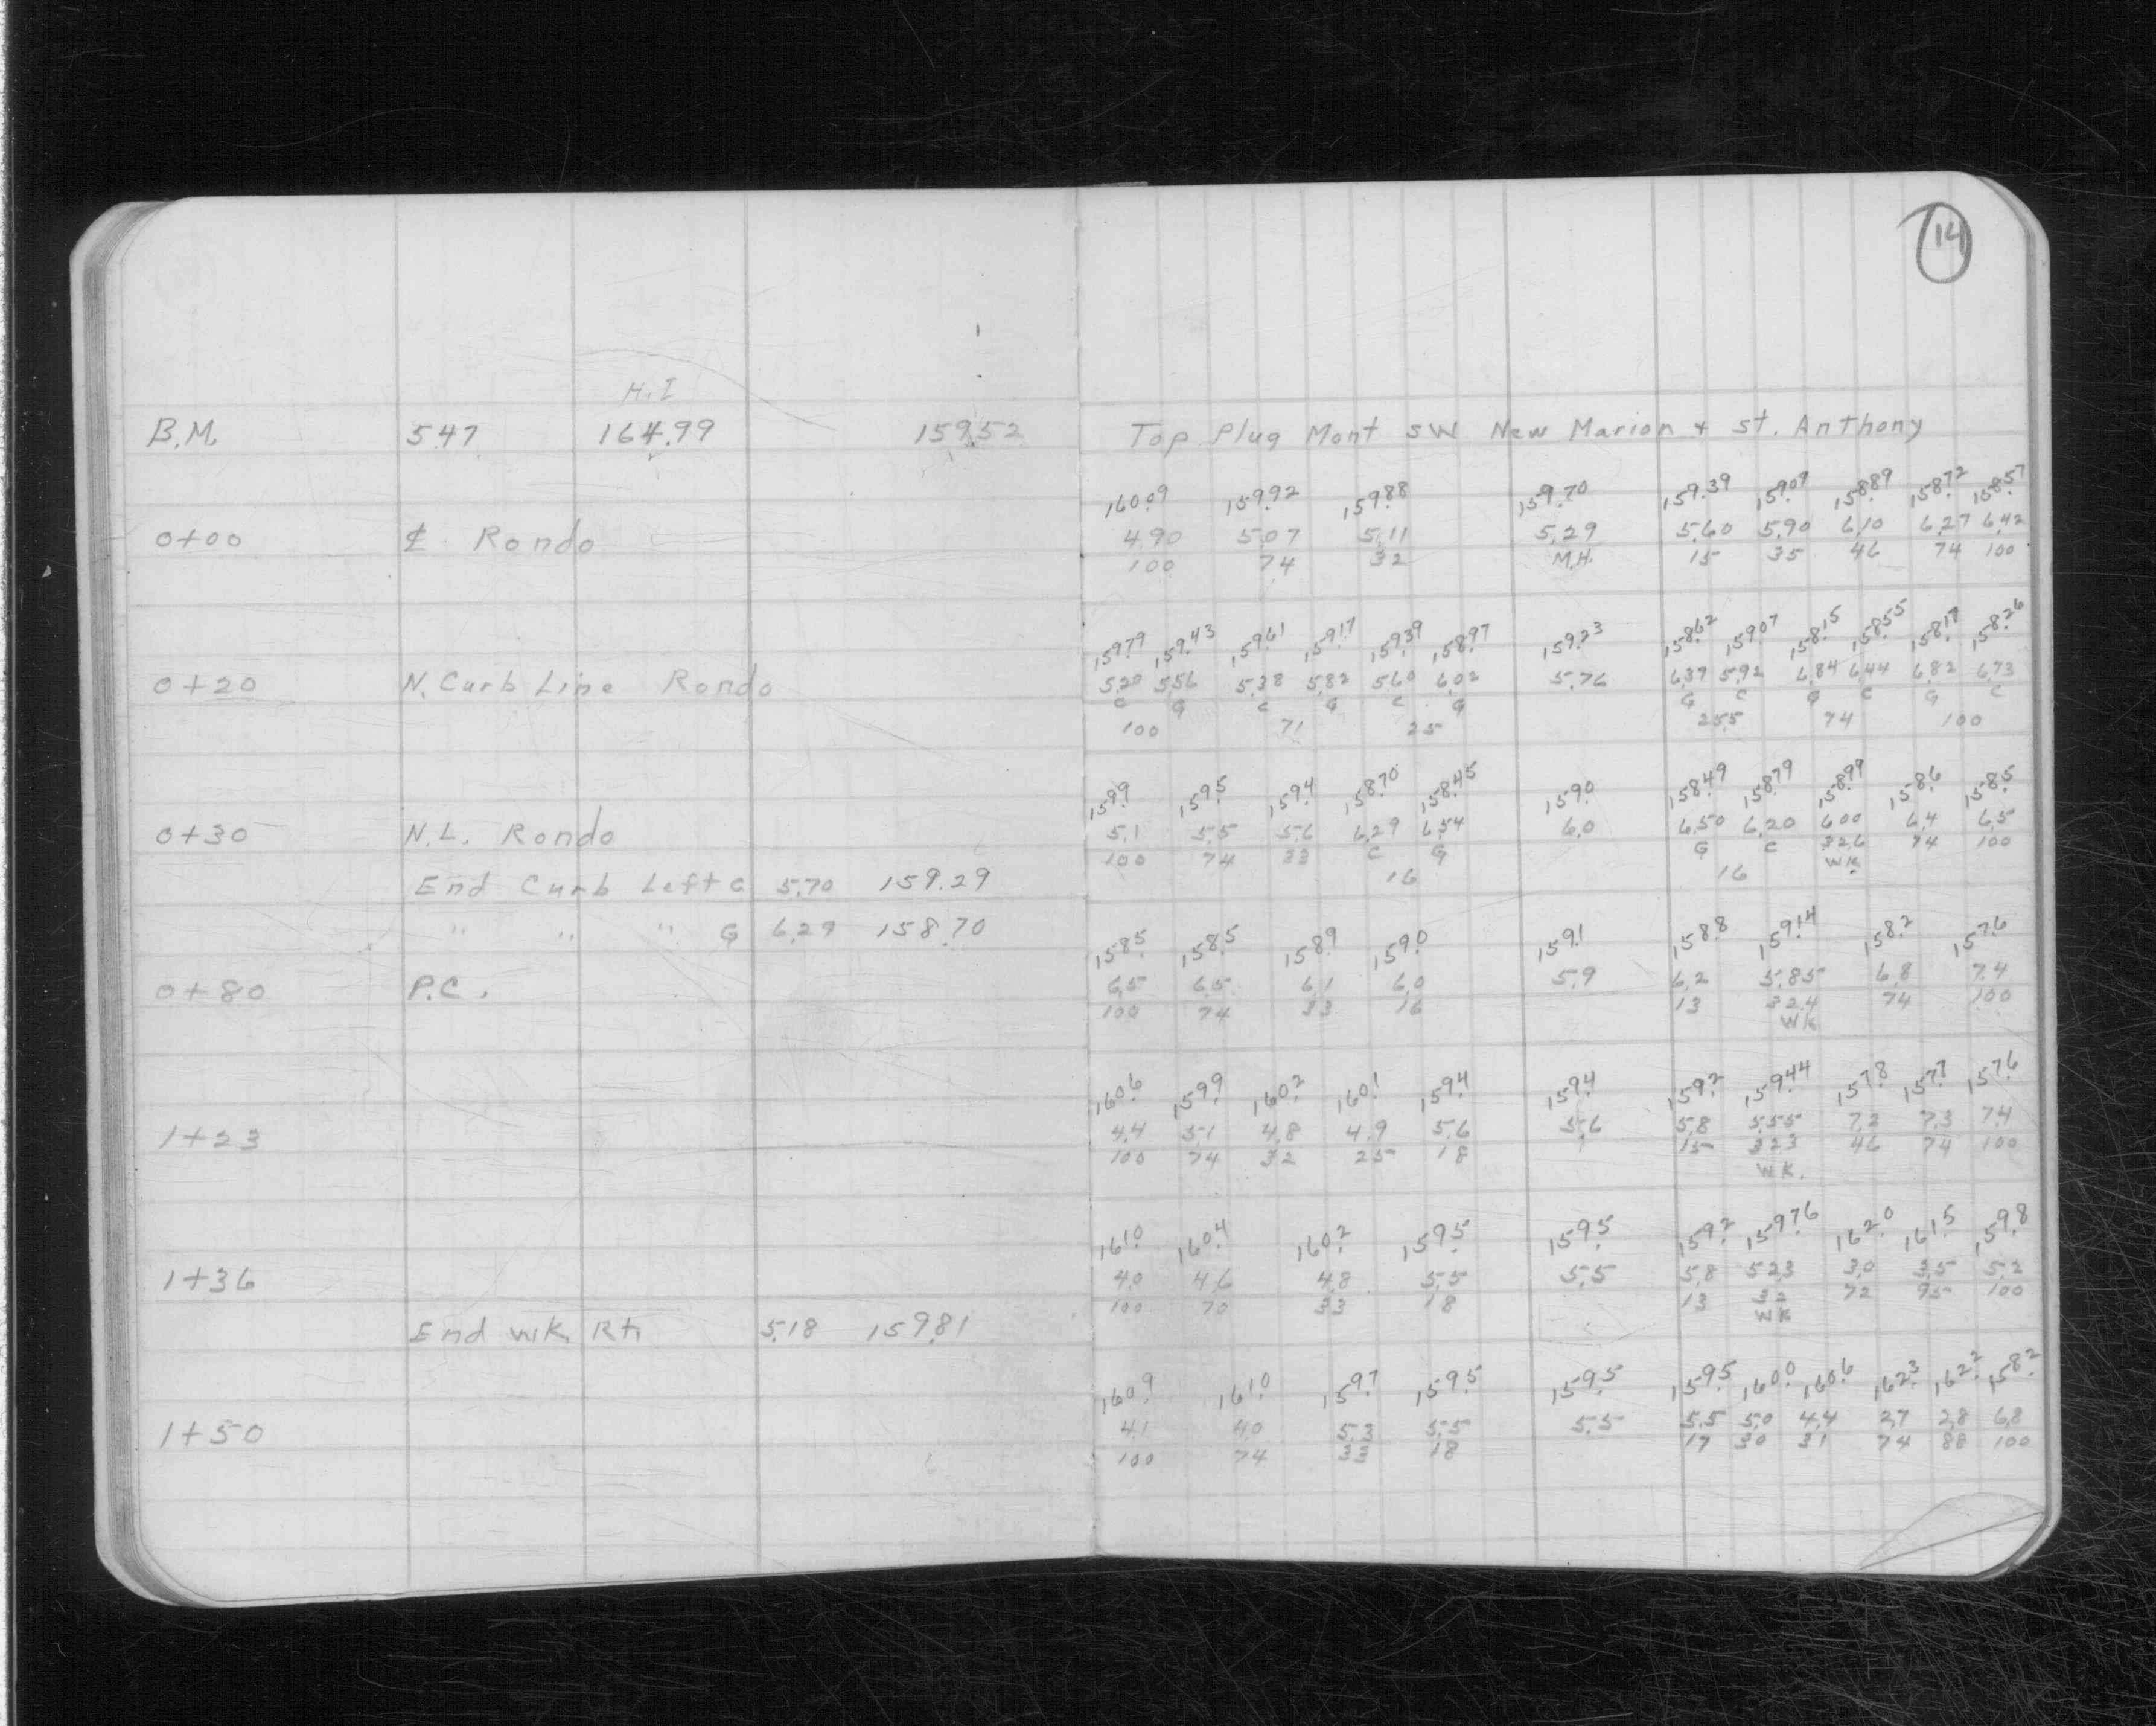 14
H.I
B.M. 5.47 164.99 159.52 Top Plug Mont SW New Marion + St. Anthony
160.09 159.92 159.88 159.70 159.39 159.09 158.89 158.72 158.57
0+00 ℄ Rondo 4.90 5.07 5.11 5.29 5.60 5.90 6.10 6.27 6.42
100 74 32 M.H. 15 35 46 74 100
159.79 159.43 159.61 159.17 159.39 158.97 159.23 158.62 159.07 158.15 158.55 158.17 158.26
0+20 N. Curb Line Rondo 5.20 5.56 5.38 5.82 5.60 6.02 5.76 6.37 5.92 6.84 6.44 6.82 6.73
C G C G C G G C G C G C
100 71 25 25.5 74 100
159.9 159.5 159.4 158.70 158.45 159.0 158.49 158.79 158.99 158.6 158.5
0+30 N.L. Rondo 5.1 5.5 5.6 6.29 6.54 6.0 6.50 6.20 6.00 6.4 6.5
100 74 33 C G G C 32.6 74 100
WK
End Curb Left C 5.70 159.29 16 16
" " " G 6.29 158.70
158.5 158.5 158.9 159.0 159.1 158.8 159.14 158.2 157.6
0+80 P.C. 6.5 6.5 6.1 6.0 5.9 6.2 5.85 6.8 7.4
100 74 33 16 13 32.4 74 100
WK
160.6 159.9 160.2 160.1 159.4 159.4 159.2 159.44 157.8 157.7 157.6
1+23 4.4 5.1 4.8 4.9 5.6 5.6 5.8 5.55 7.2 7.3 7.4
100 74 32 25 18 15 32.3 46 74 100
WK.
161.0 160.4 160.2 159.5 159.5 159.2 159.76 162.0 161.5 159.8
1+36 4.0 4.6 4.8 5.5 5.5 5.8 5.23 3.0 3.5 5.2
100 70 33 18 13 32 72 95 100
WK
End wk Rt 5.18 159.81
160.9 161.0 159.7 159.5 159.5 159.5 160.0 160.6 162.3 162.2 158.2
1+50 4.1 4.0 5.3 5.5 5.5 5.5 5.0 4.4 2.7 2.8 6.8
100 74 33 18 17 30 31 74 88 100